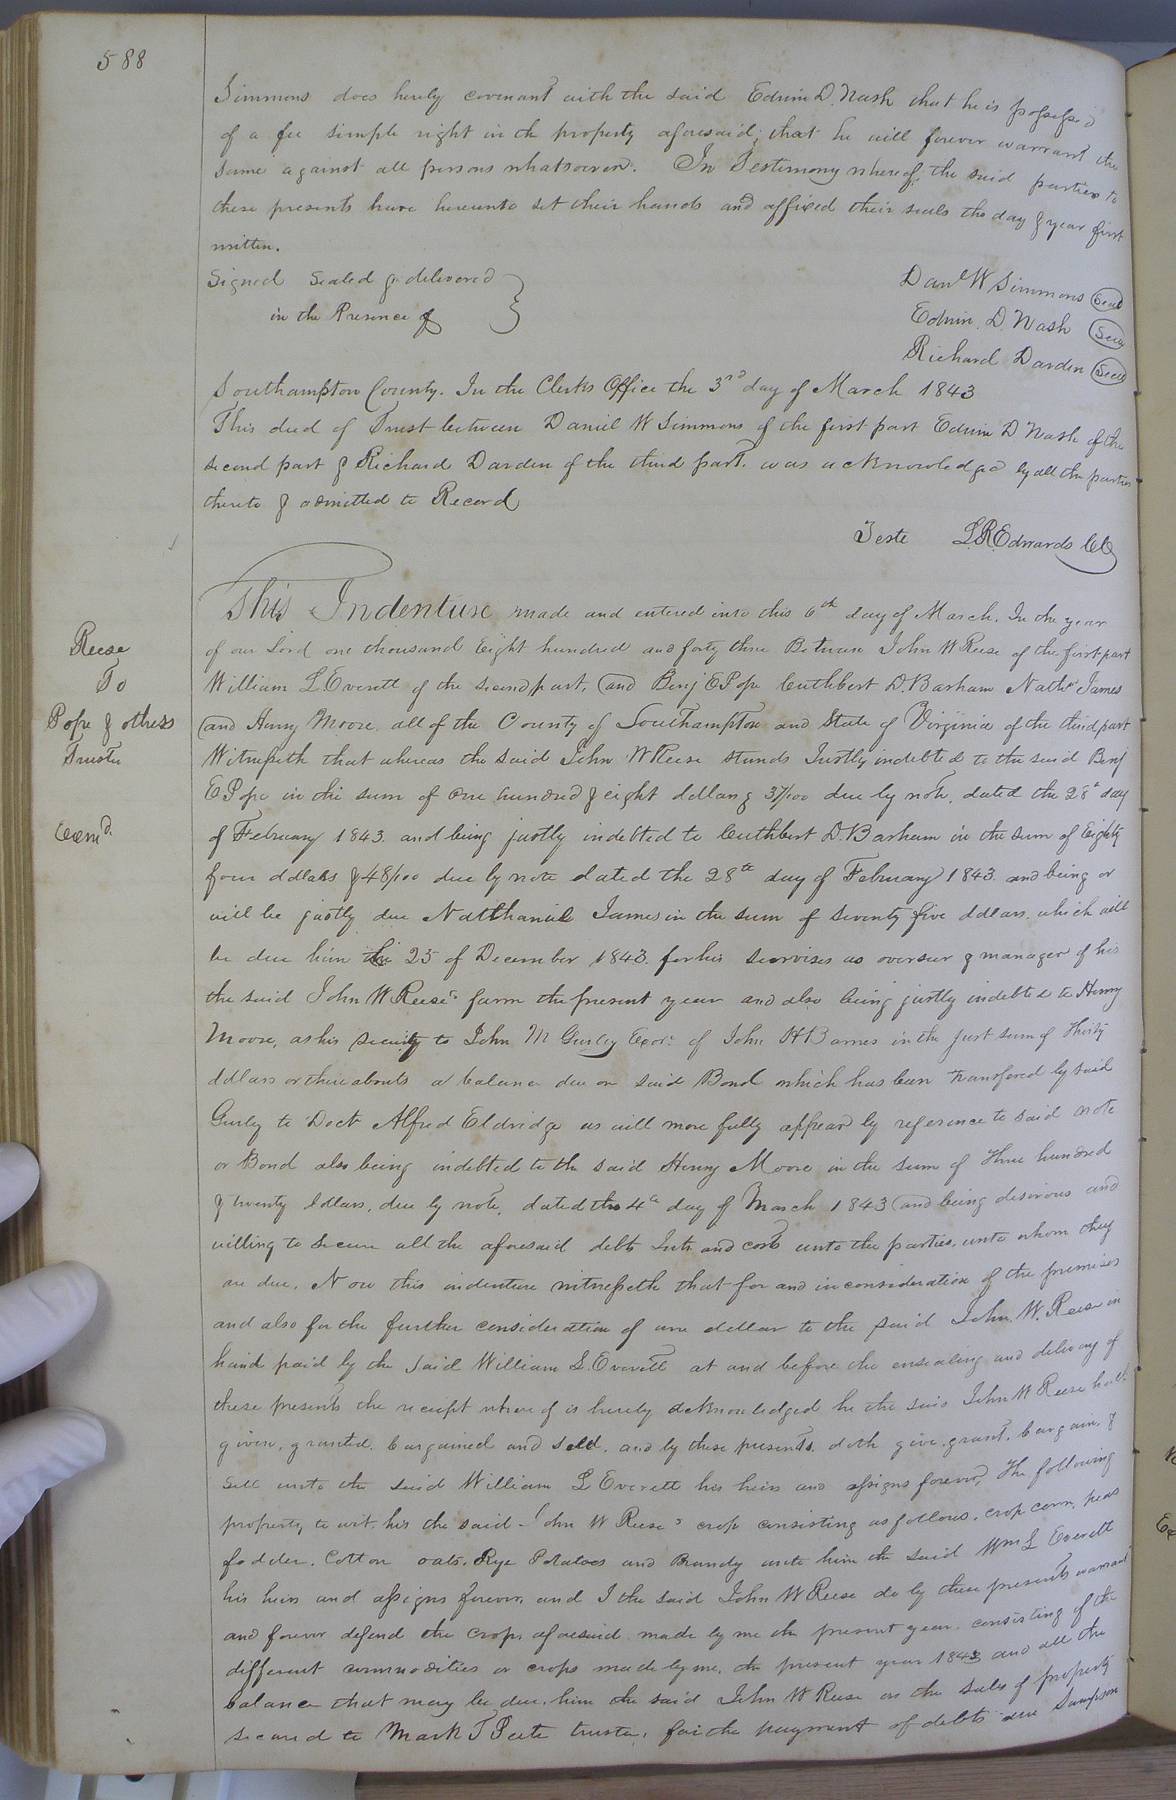 588
Simmons does hereby covenant with the said Edwin D. Nash that he is possessed
of a fee simple right in the property aforesaid; that he will forever warrant the
same against all persons whatsoever. In Testimony whereof, the said parties to
these presents have hereunto set their hands and affixed their seals the day & year first
written.
Signed Sealed & delivered
in the Presence of
Danl W Simmons Seal
Edwin. D. Nash Seal
Richard Darden Seal
Southampton County. In the Clerks Office the 3rd day of March 1843
This deed of Trust between Daniel W Simmons of the first part Edwin D Nash of the
second part & Richard Darden of the third part. was acknowledged by all the parties
thereto & admitted to Record
Teste L.R. Edwards
This Indenture made and entered into this 6th day of March. In the year
of our Lord one thousand Eight hundred and forty three Between John W Reese of the first part
William L Everett of the second part, and Benj E Pope Cuthbert D. Barham Nathl James
and Henry Moore all of the County of Southampton and State of Virginia of the third part
Witnesseth that whereas the said John W Reese stands Justly indebted to the said Benj
E Pope in the sum of One hundred & eight dollars & 37/100 due by note, dated the 28th day
of February 1843. and being justly indebted to Cuthbert D. Barham in the sum of Eighty
four dollars & 48/100 due by note dated the 28th day of February 1843 and being or
will be justly due Natthaniel James in the sum of seventy five dollars. which will
be due him the 25 of December 1843. for his servises as overseer & manager of his
the said John W Reese's farm the present year and also being justly indebted to Henry
Moore, as his security to John M Gurley Exor. of John H Barnes in the Just sum of Thirty
dollars or thereabouts a balance due on said Bond which has been transfered by said
Gurley to Doct Alfred Eldridge as will more fully appear by reference to said note
or Bond also being indebted to the said Henry Moore in the sum of Three hundred
& twenty dollars, due by note, dated the 4th day of March 1843 and being desirous and
willing to secure all the aforesaid debts Ints and costs unto the parties, unto whom they
are due, Now this indenture witnesseth that for and in consideration of the premises
and also for the further consideration of one dollar to the said John. W. Reese in
hand paid by the said William L. Everett at and before the ensealing and delivery of
these presents the receipt where of is hereby acknowledged he the said John W Reese hath
given, granted, bargained and sold, and by these presents. doth give, grant, bargain, &
sell unto the said William L Everett his heirs and assigns forever, the following
property to wit. his the said John W Reese's crop consisting as follows. crop corn, peas
fodder. Cotton oats. Rye Potatoes and Brandy unto him the said Wm L Everett
his heirs and assigns forever, and I the said John W Reese do by these presents warrant
and forever defend the crops aforesaid made by me the present year. consisting of the
different commodities or crops made by me, the present year 1843 and all the
balance that may be due. him the said John W Reese on the sales of property
secured to Mark T Pete trustee, for the payment of debts due Sampson
Reese
To
Pope & others
Trustee
Examd.